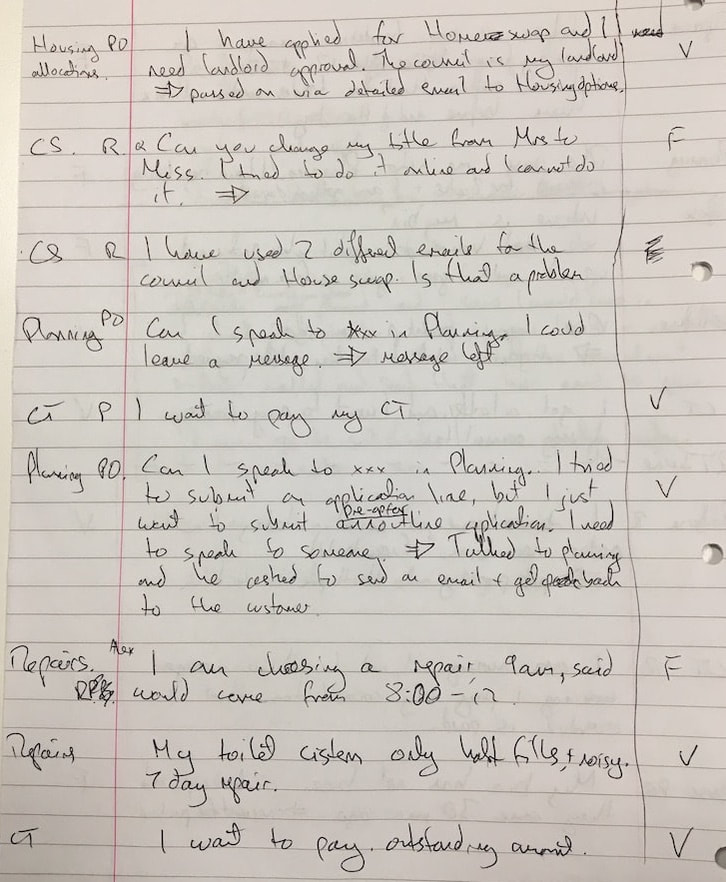 Housing PO I have applied for Homeswap and I V
allocations. need landlord approval. The council is my landlord
⇒ passed on via detailed email to Housing options.
CS. R Can you change my title from Mrs to F
Miss. I tried to do it online and I cannot do
it. ⇒
CS R I have used 2 different emails for the
council and House swap. Is that a problem
Planning PO Can I speak to xxx in Planning. I could
leave a message. ⇒ message left
CT P I want to pay my CT. V
Planning PO. Can I speak to xxx in Planning.. I tried
to submit an application line, but I just V
want to submit outline application. I need
to speak to someone. ⇒ Talked to planning
and he asked to send an email + get back
to the customer.
Repairs. I am chasing a repair, 9am, said F
would come from 8:00 - 12.
Repairs My toilet cistern only half fills, + noisy. V
7 day repair.
CT I want to pay. outstanding amount. V